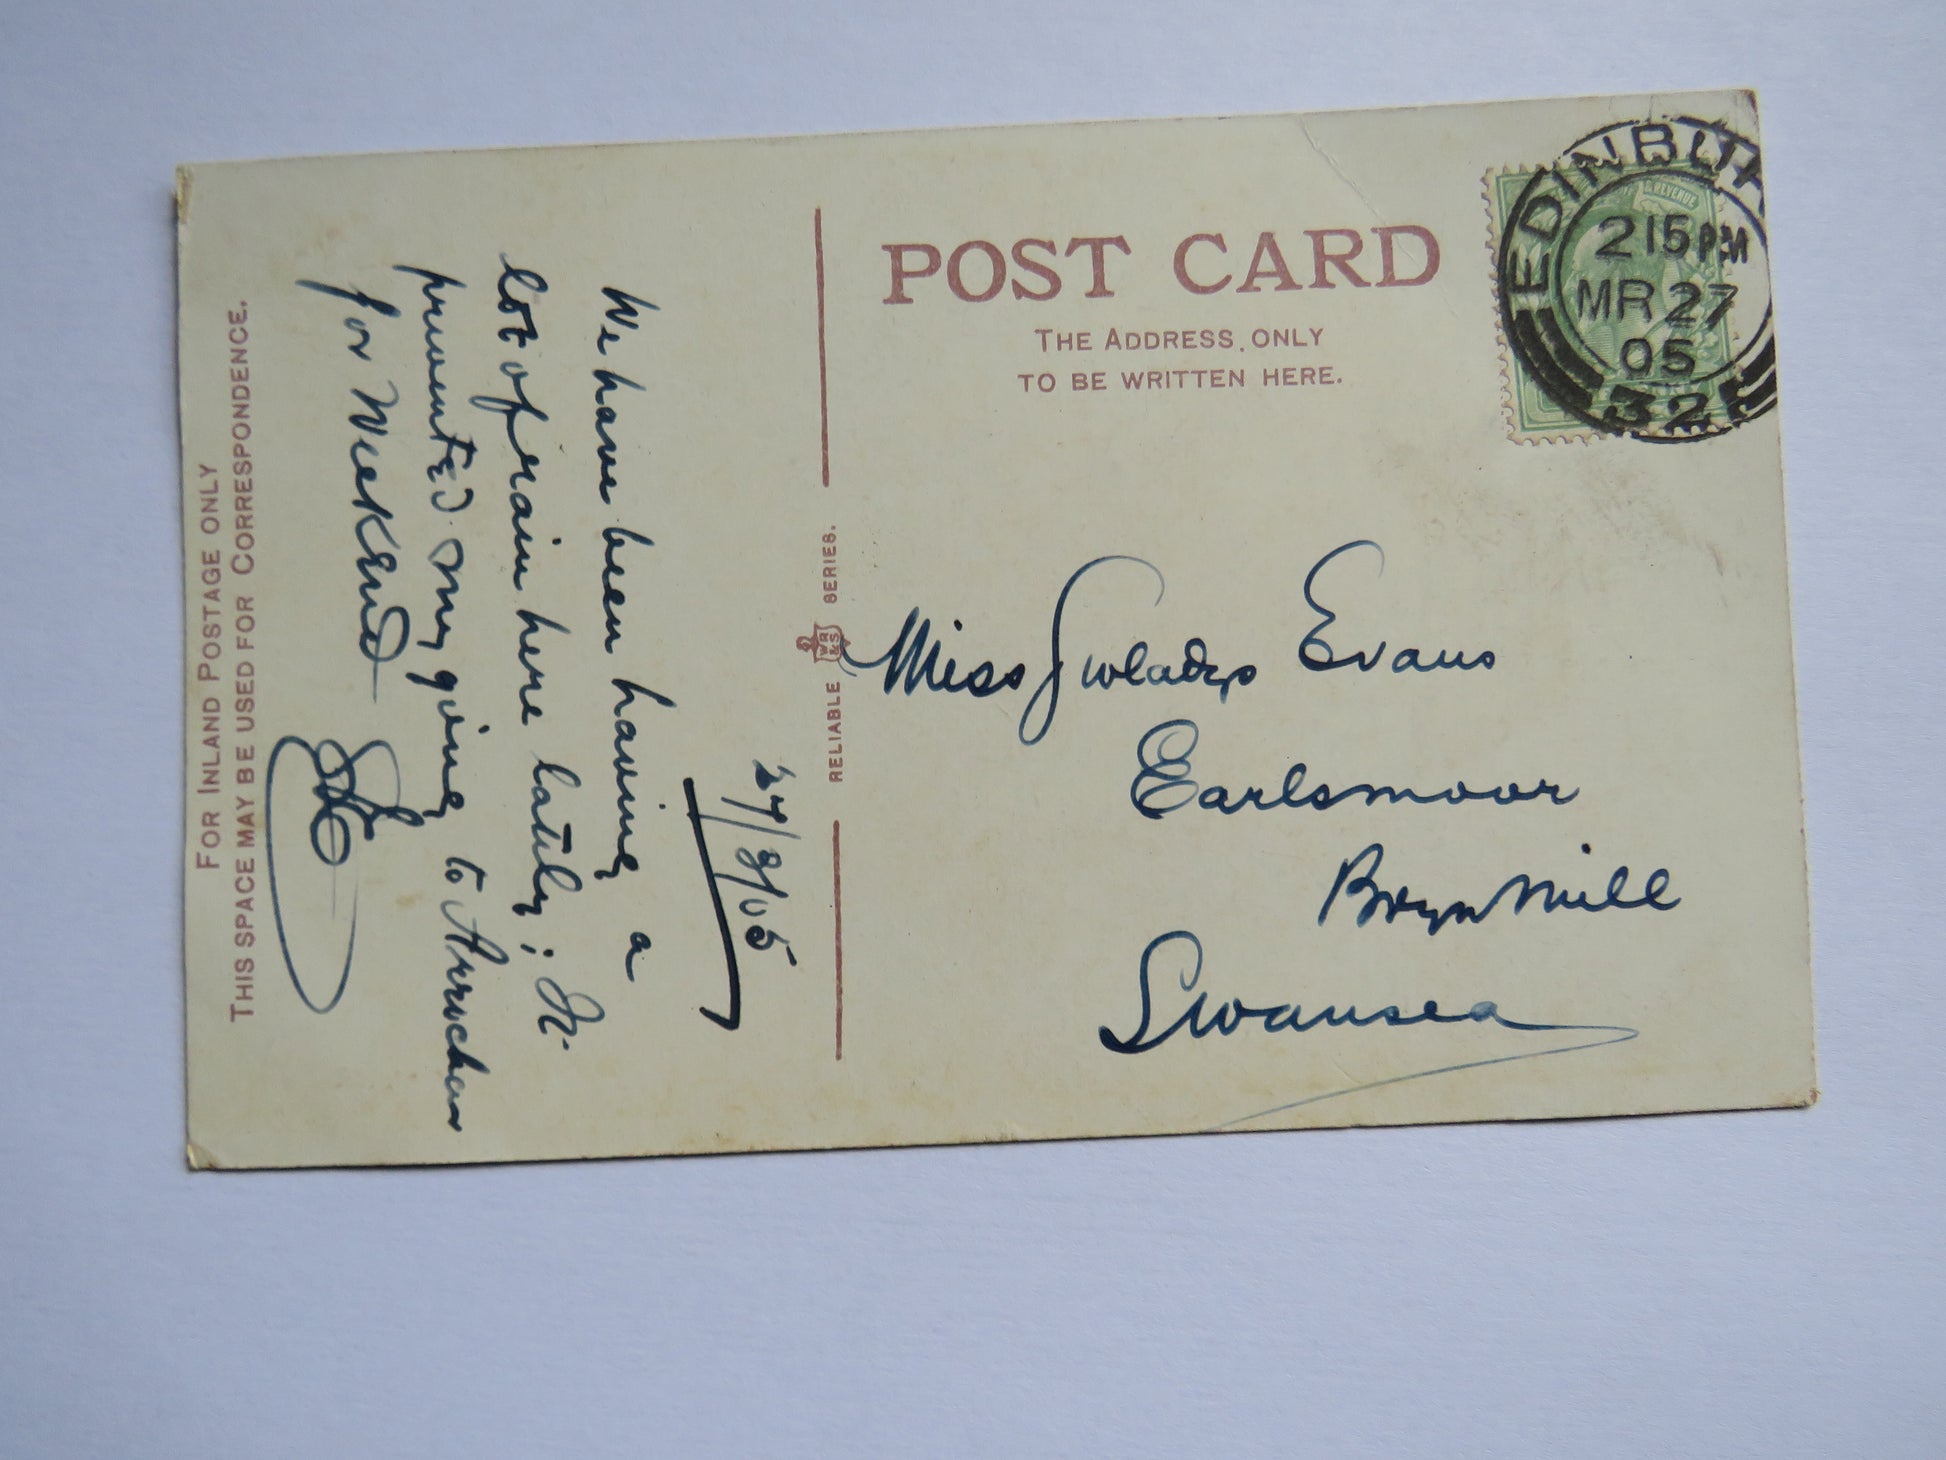 FOR INLAND POSTAGE ONLY
THIS SPACE MAY BE USED FOR CORRESPONDENCE.
27/3/05
We have been having a
lot of rain here lately; It
prevented my going to Arrochar
for WeekEnd
RELIABLE WR&S SERIES.
POST CARD
THE ADDRESS ONLY
TO BE WRITTEN HERE.
EDINBU
2 15 PM
MR 27
05
32
& REVENUE
Miss Gwladys Evans
Earlsmoor
Brynmill
Swansea